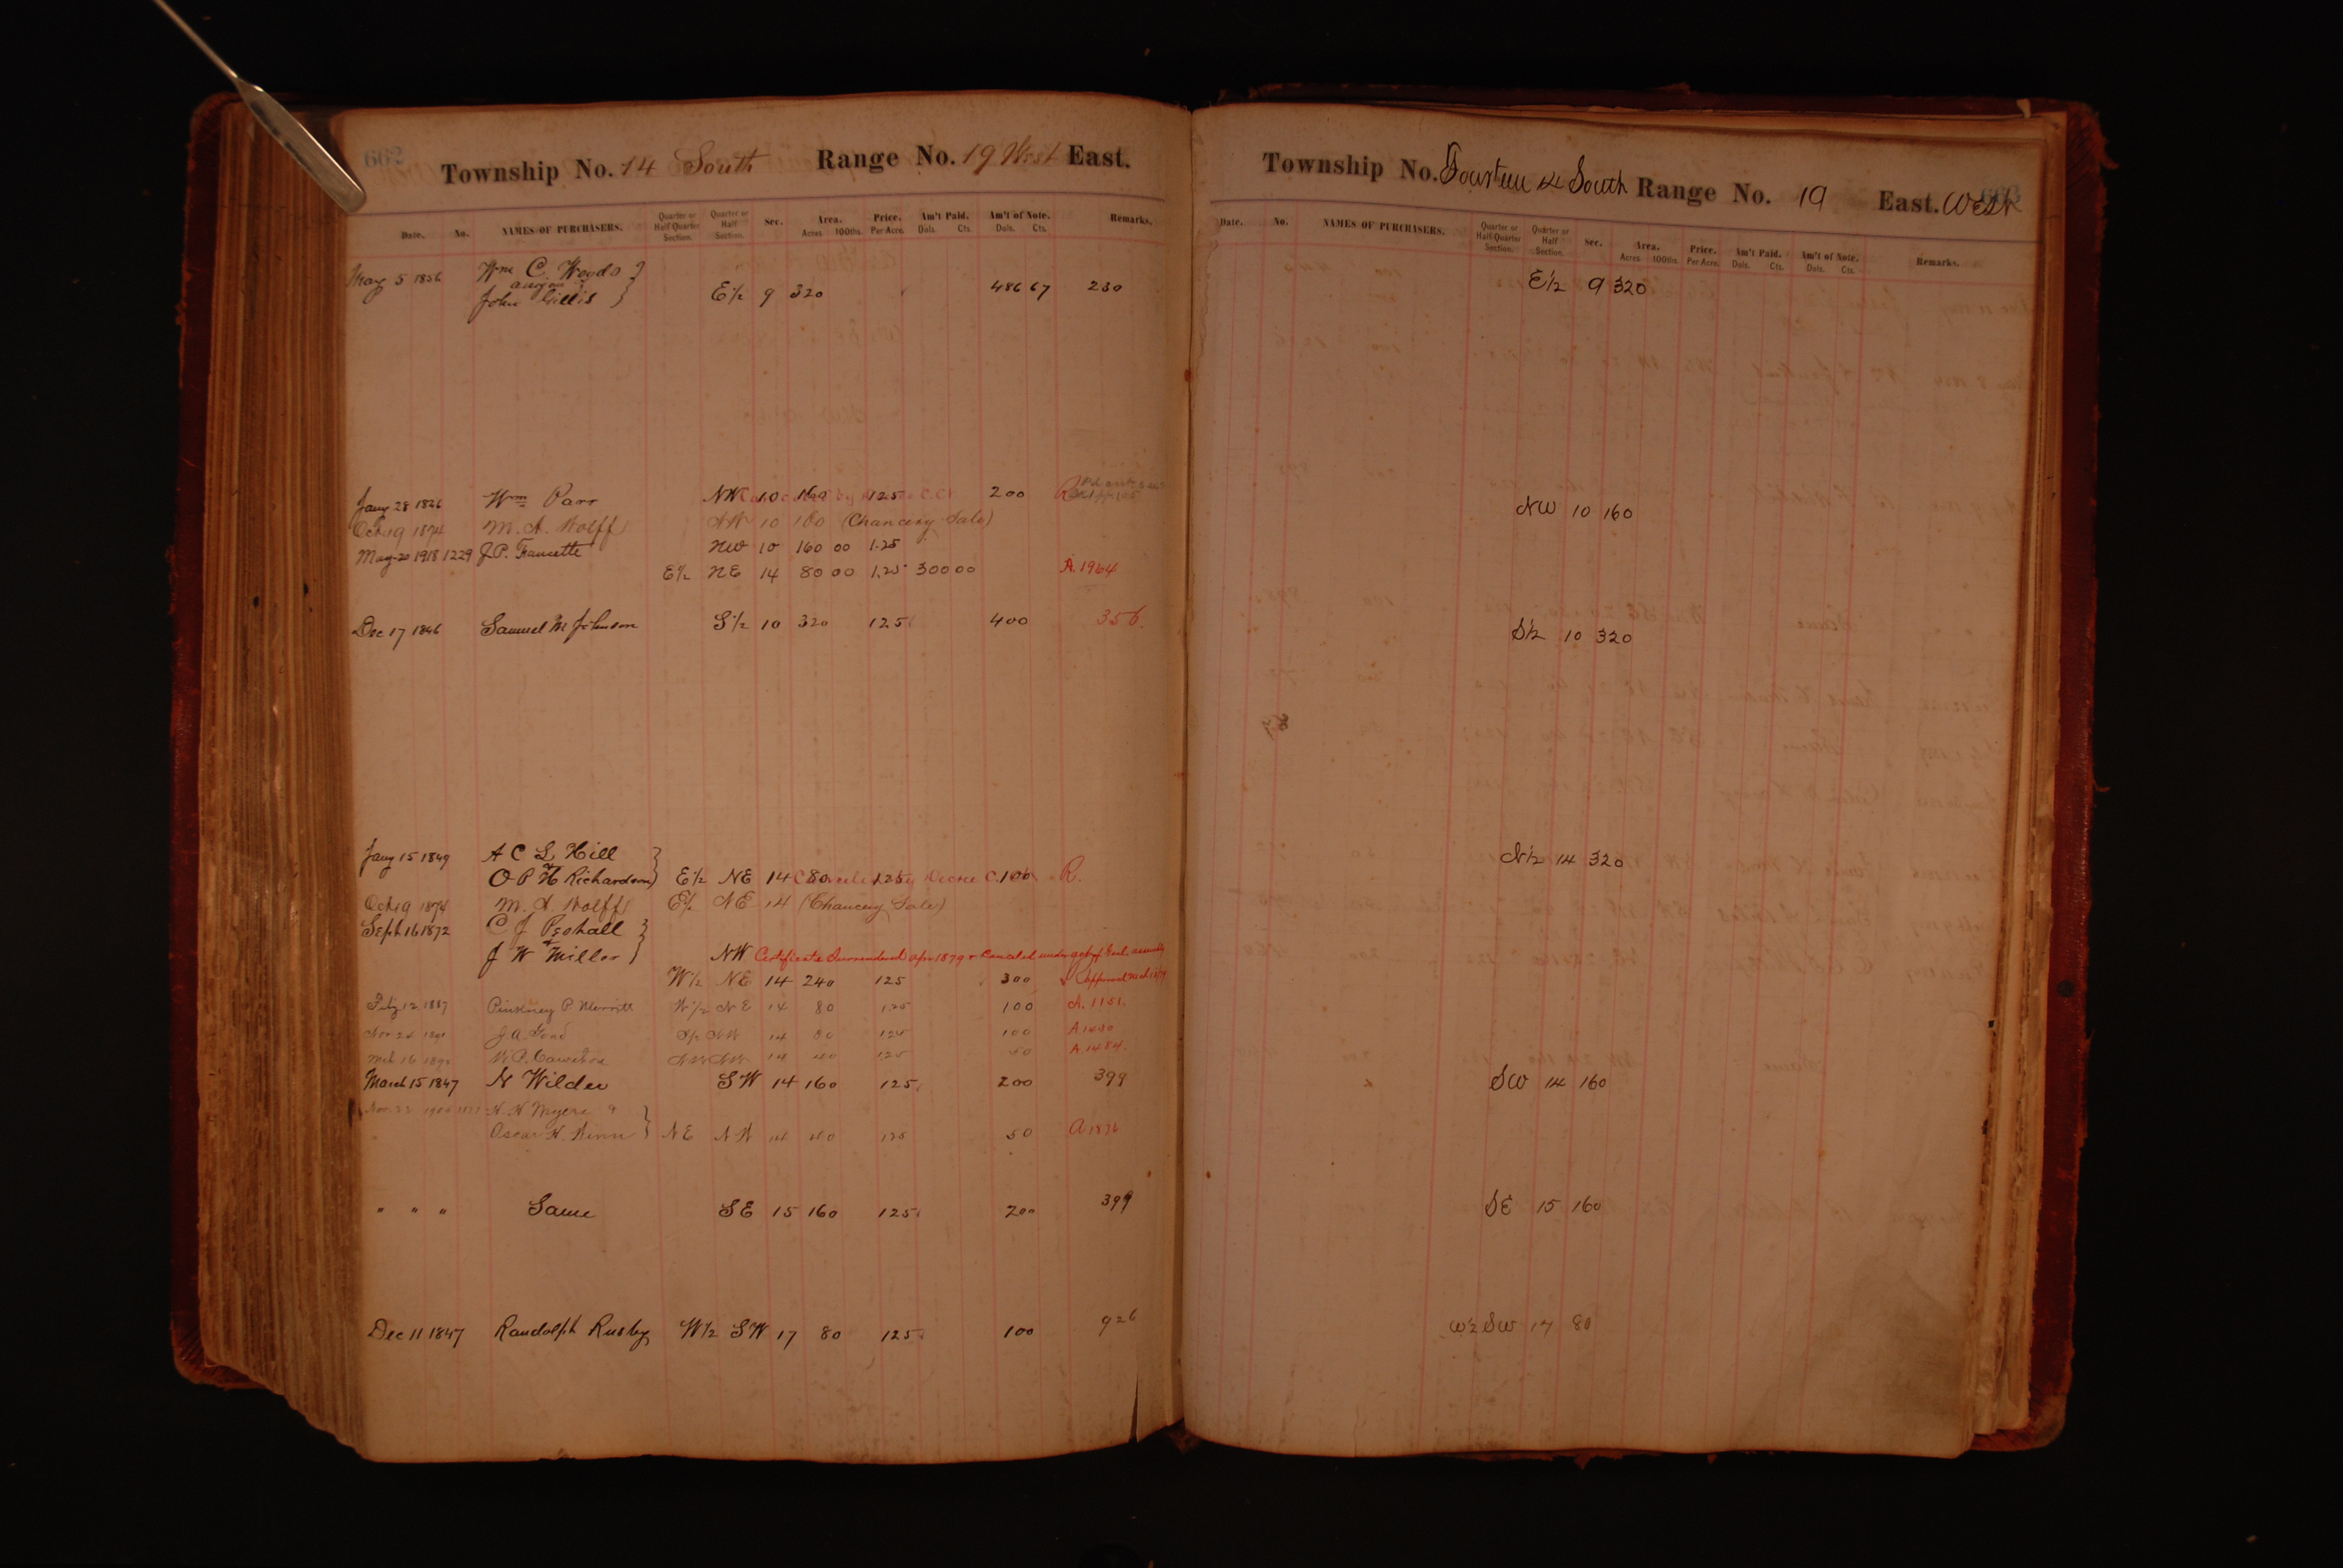 662
Township No. 14 South Range No. 19 West East.
Date. No. NAMES OF PURCHASERS. Quarter or Half-Quarter Section. Quarter or Half Section. Sec. Area. Acres 100ths. Price. Per Acre. Am't Paid. Dols. Cts. Am't of Note. Dols. Cts. Remarks.
May 5 1856 Wm C. Woods
John Gillis E½ 9 320 486 67 230
Jany 28 1846 Wm Parr NW 10 160 125 200 R
Oct 19 1874 M. A. Wolff NW 10 160 (Chancery Sale)
May 20 1918 1229 J.P. Faucette NW 10 160 00 1.25
E½ NE 14 80 00 1.25 300 00 A. 1964
Dec 17 1846 Samuel M Johnson S½ 10 320 125 400 356
Jany 15 1849 A C L Hill
O P H Richardson E½ NE 14 80 125 100 R.
Oct 19 1874 M. A. Wolff E½ NE 14 (Chancery Sale)
Sept 16 1872 C J Peshall
J W Miller NW Certificate Surrendered Apr 1879 & Canceled under act of Genl. assembly
W½ NE 14 240 125 300 Approved
Feby 12 1887 Pinkney P. Merritt W½ NE 14 80 1.25 100 A. 1151.
J. A. Good S½ NW 14 80 125 100 A
Mch 16 NW NW 14 40 125 50 A. 1484.
March 15 1847 N Wilder SW 14 160 125 200 399
Nov. 22 H. H Myers &
Oscar H. Winn NE NW 14 40 125 50 A
" " " Same SE 15 160 125 200 399
Dec 11 1847 Randolph Rusby W½ SW 17 80 125 100 926
663
Township No. Fourteen 14 South Range No. 19 East. West
Date. No. NAMES OF PURCHASERS. Quarter or Half-Quarter Section. Quarter or Half Section. Sec. Area. Acres 100ths. Price. Per Acre. Am't Paid. Dols. Cts. Am't of Note. Dols. Cts. Remarks.
E½ 9 320
NW 10 160
S½ 10 320
N½ 14 320
SW 14 160
SE 15 160
W½ SW 17 80